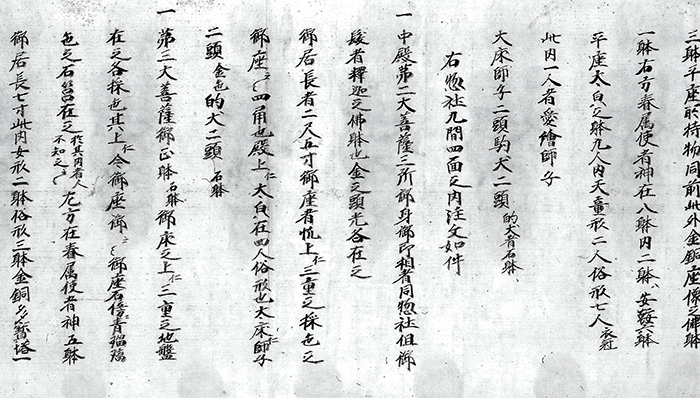 三躰平座於持物同前此外金銅座像之佛躰
一躰右方眷属使者神在八躰内二躰、女鞍六躰
平座大白之躰九人内天童形二人俗形七人衣冠
此内一人者愛繪師子
大床師子二頭駒犬二頭的犬青石躰
右惣社九間四面之内注文如件
一中殿第二大善薩三所御身御即相者同惣社但御
髪者釋迦之佛躰也金之頭光各在之
御居長者二尺五寸御座者帖上仁三重之採色之
御座〻四角也殿上仁大白在四人俗形也大床師子
二頭金色的犬二頭石躰
一第三大善薩御正躰石躰御床之上仁三重之地盤
在之各採色其上仁令御座御〻御座石像青瑠璃
色之石筥在之於其内者人不知之左方在眷属使者神五躰
御居長七寸此内女形二躰俗形三躰金銅多寳塔一